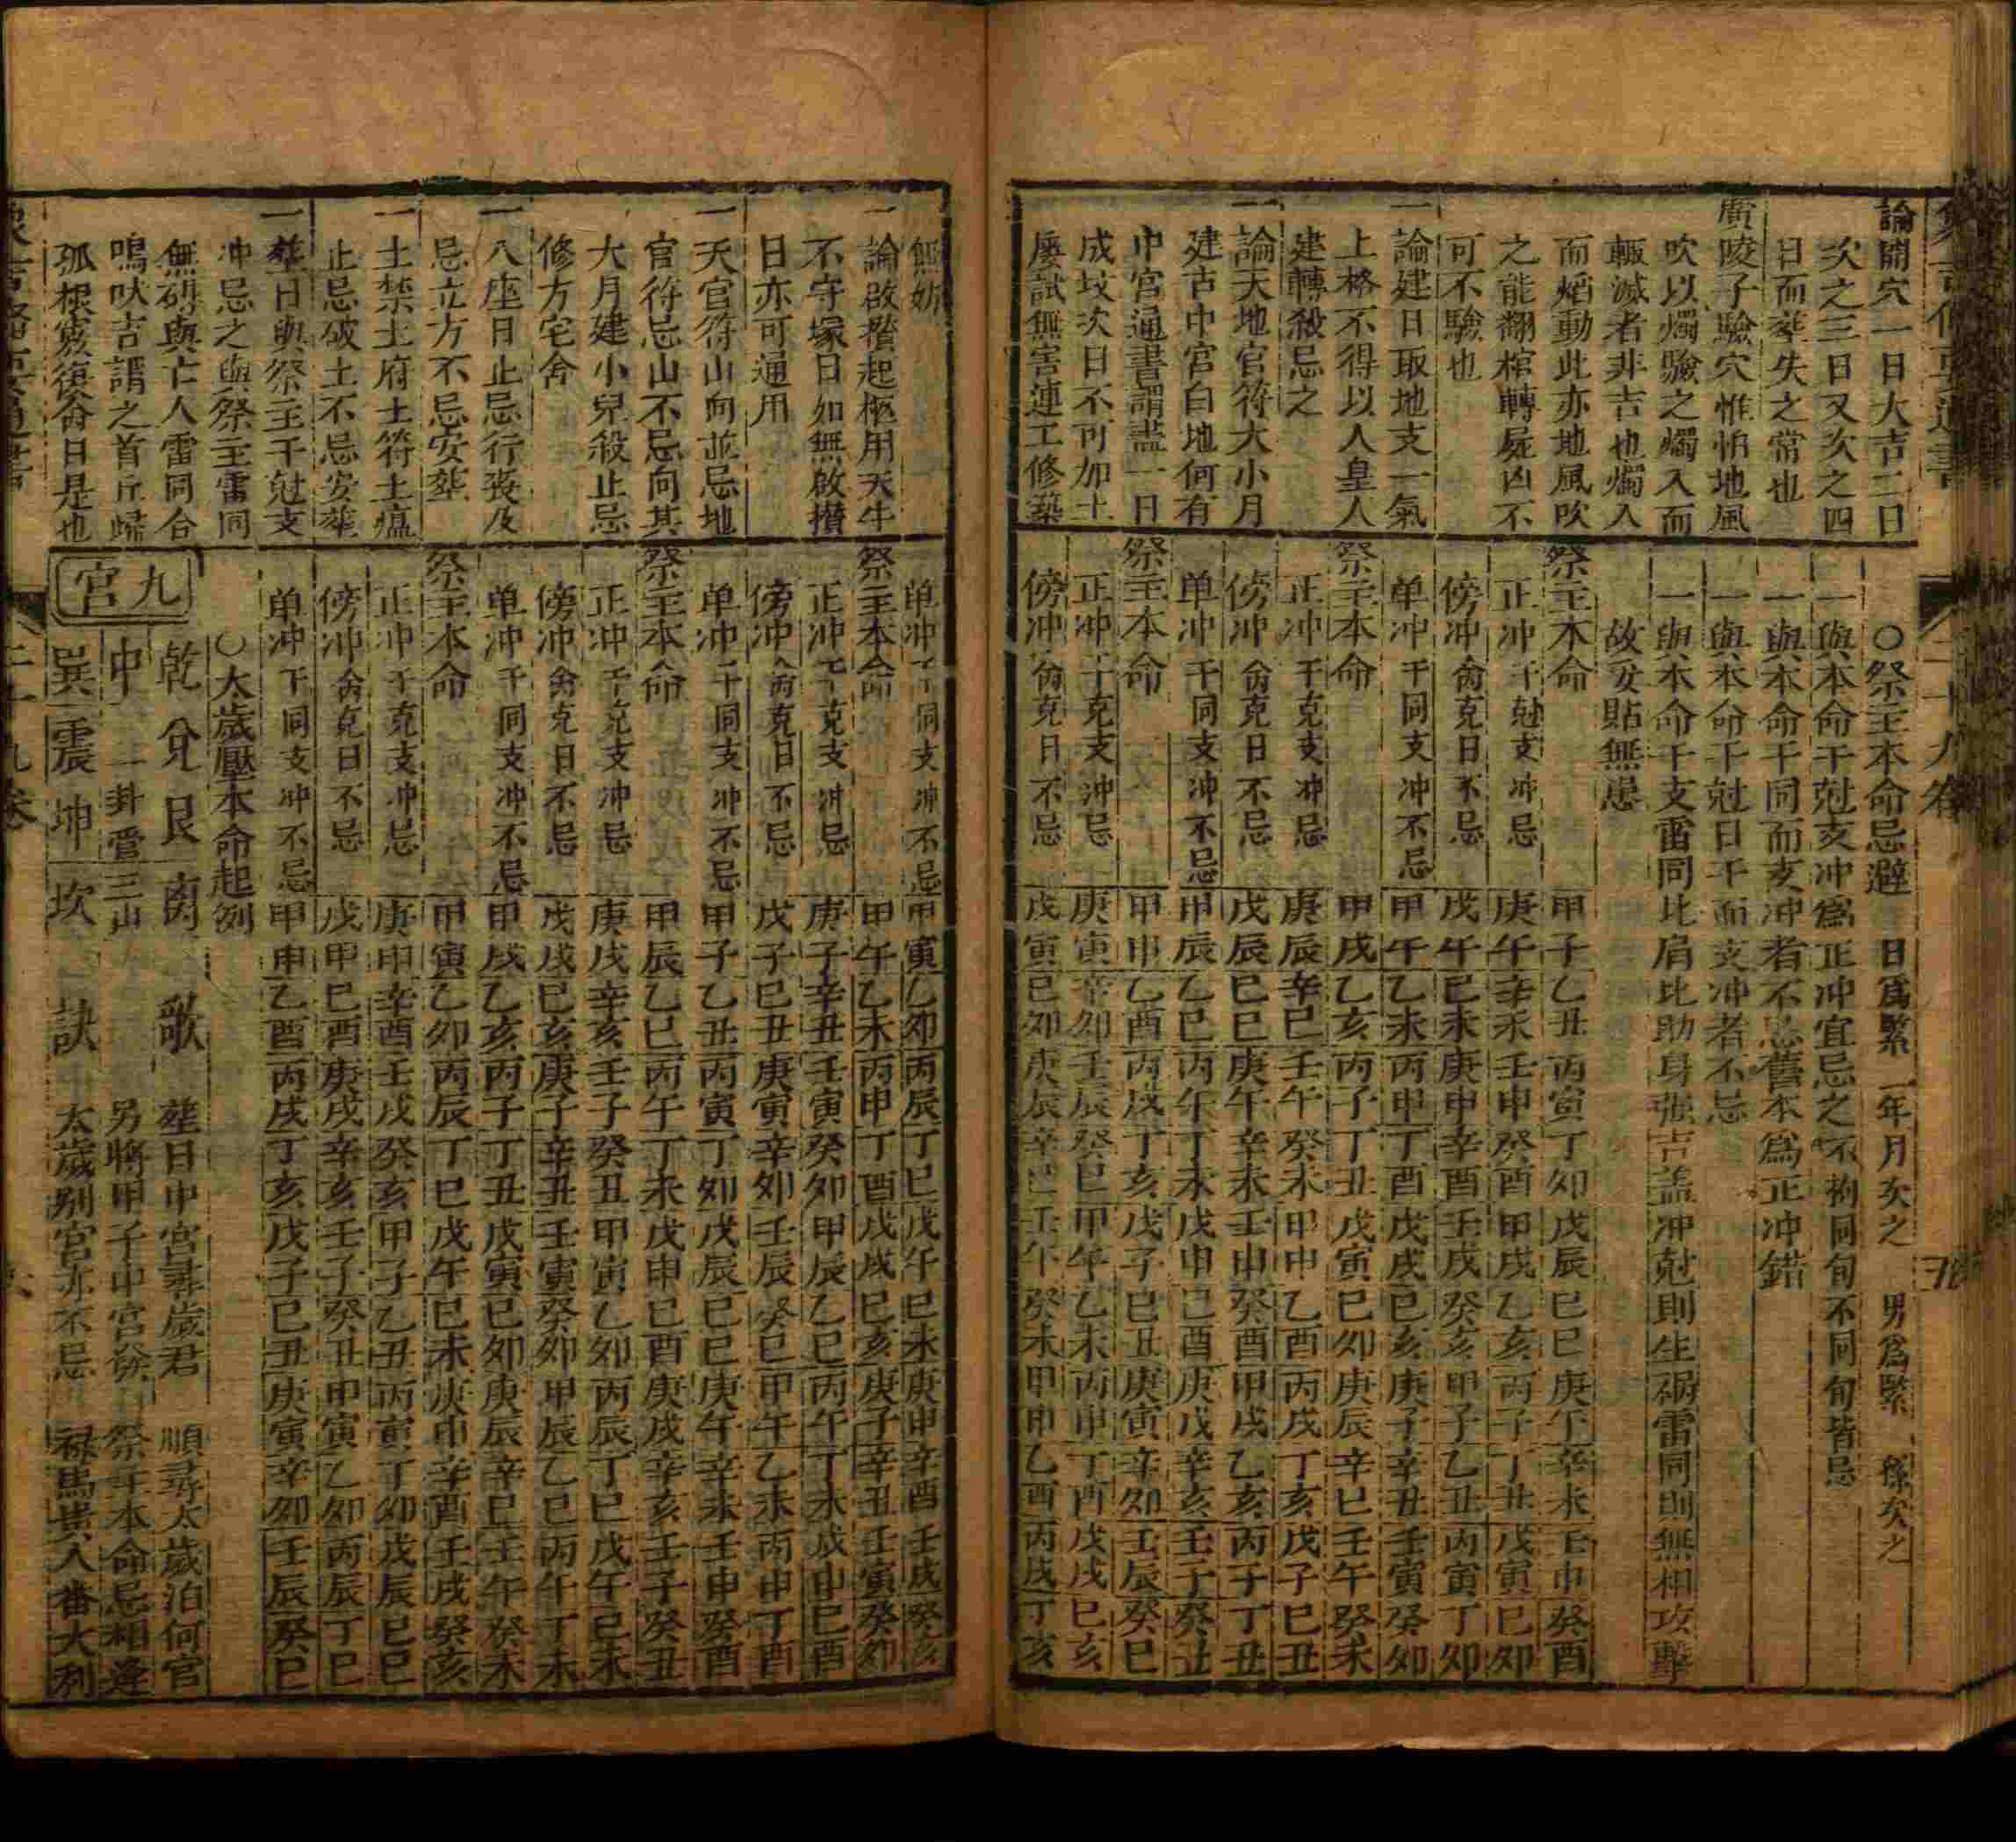 二十九卷
論開穴一日大吉二日
次之三日又次之四
日而塟失之常也
廣陵子驗穴惟怕地風
吹以燭驗之燭入而
輒滅者非吉也燭入
而熖動此亦地風吹
之能翻棺轉屍凶不
可不驗也
一論建日取地支一氣
上格不得以人皇人
建轉殺忌之
一論天地官符大小月
建古中宮白地何有
中宮通書謂盡一日
成坟次日不可加土
屡試無害連工修築
○祭主本命忌避 日為緊 年月次之 男為緊 孫次之
一與本命干尅支冲為正冲宜忌之不拘同旬不同旬皆忌
一與本命干同而支冲者不忌舊本為正冲錯
一與本命干尅日干而支冲者不忌
一與本命干支雷同比肩比助身强吉盖冲尅則生祸雷同則無相攻擊
故安貼無患
祭主本命 甲子乙丑丙寅丁卯戊辰己巳庚午辛未壬申癸酉
正冲 干尅支冲忌 庚午辛未壬申癸酉甲戌乙亥丙子丁丑戊寅己卯
傍冲 禽克日不忌 戊午己未庚申辛酉壬戌癸亥甲子乙丑丙寅丁卯
单冲 干同支冲不忌 甲午乙未丙申丁酉戊戌己亥庚子辛丑壬寅癸卯
祭主本命 甲戌乙亥丙子丁丑戊寅己卯庚辰辛巳壬午癸未
正冲 干克支冲忌 庚辰辛巳壬午癸未甲申乙酉丙戌丁亥戊子己丑
傍冲 禽克日不忌 戊辰己巳庚午辛未壬申癸酉甲戌乙亥丙子丁丑
单冲 干同支冲不忌 甲辰乙巳丙午丁未戊申己酉庚戌辛亥壬子癸丑
祭主本命 甲申乙酉丙戌丁亥戊子己丑庚寅辛卯壬辰癸巳
正冲 干克支冲忌 庚寅辛卯壬辰癸巳甲午乙未丙申丁酉戊戌己亥
傍冲 禽克日不忌 戊寅己卯庚辰辛巳壬午癸未甲申乙酉丙戌丁亥
無妨
一論啟攢起柩用天牛
不守塚日如無啟攢
日亦可通用
一天官符山向並忌地
官符忌山不忌向其
大月建小兒殺止忌
修方宅舍
一八座日止忌行喪及
忌立方不忌安塟
一土禁土府土符土瘟
止忌破土不忌安塟
一塟日與祭主干尅支
冲忌之與祭主雷同
無碍與亡人雷同合
鳴吠吉謂之首丘歸
孤根葳復命日是也
单冲 干同支冲不忌 甲寅乙卯丙辰丁巳戊午己未庚申辛酉壬戌癸亥
祭主本命 甲午乙未丙申丁酉戊戌己亥庚子辛丑壬寅癸卯
正冲 干克支冲忌 庚子辛丑壬寅癸卯甲辰乙巳丙午丁未戊申己酉
傍冲 禽克日不忌 戊子己丑庚寅辛卯壬辰癸巳甲午乙未丙申丁酉
单冲 干同支冲不忌 甲子乙丑丙寅丁卯戊辰己巳庚午辛未壬申癸酉
祭主本命 甲辰乙巳丙午丁未戊申己酉庚戌辛亥壬子癸丑
正冲 干克支冲忌 庚戌辛亥壬子癸丑甲寅乙卯丙辰丁巳戊午己未
傍冲 禽克日不忌 戊戌己亥庚子辛丑壬寅癸卯甲辰乙巳丙午丁未
单冲 干同支冲不忌 甲戌乙亥丙子丁丑戊寅己卯庚辰辛巳壬午癸未
祭主本命 甲寅乙卯丙辰丁巳戊午己未庚申辛酉壬戌癸亥
正冲 干克支冲忌 庚申辛酉壬戌癸亥甲子乙丑丙寅丁卯戊辰己巳
傍冲 禽克日不忌 戊申己酉庚戌辛亥壬子癸丑甲寅乙卯丙辰丁巳
单冲 干同支冲不忌 甲申乙酉丙戌丁亥戊子己丑庚寅辛卯壬辰癸巳
○太歲壓本命起例
九宮
乾兌艮离 歌 塟日中宮尋歲君 順尋太歲泊何宮
中 一卦管三山 另將甲子中宮發 祭主本命忌相逢
巽震坤坎 訣 太歲別宮亦不忌 禄馬貴人番大利